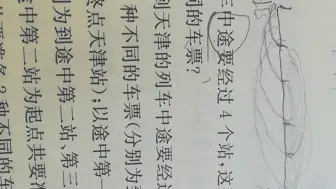 车中途要经过 4 个站,这
同的车票?
到天津的列车中途要经过
种不同的车票(分别为
终点天津站);以途中第一
为到途中第二站、第三
途中第二站为起点共要准
种不同的车